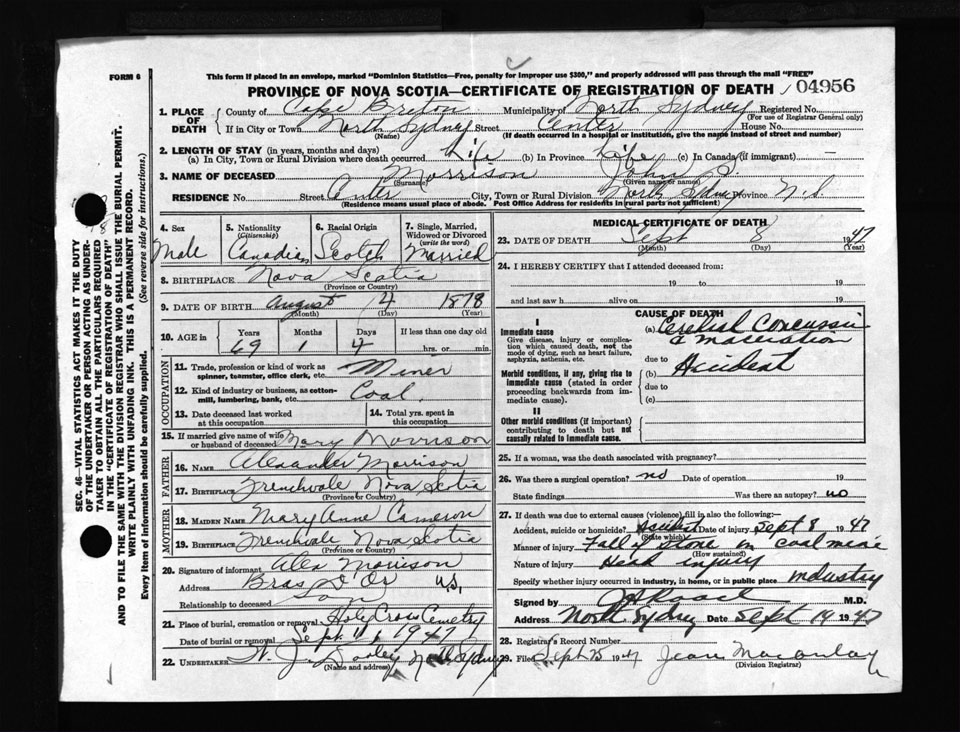 FORM 6
This form if placed in an envelope, marked "Dominion Statistics—Free, penalty for improper use $300," and properly addressed will pass through the mail "FREE"
PROVINCE OF NOVA SCOTIA—CERTIFICATE OF REGISTRATION OF DEATH 04956
1. PLACE OF DEATH County of Cape Breton Municipality of North Sydney Registered No.
(For use of Registrar General only)
If in City or Town North Sydney Street Center House No.
(Name) (If death occurred in a hospital or institution, give the name instead of street and number)
2. LENGTH OF STAY (in years, months and days)
(a) In City, Town or Rural Division where death occurred Life (b) In Province Life (c) In Canada (if immigrant) —
3. NAME OF DECEASED Morrison John S.
(Surname) (Given name or names)
RESIDENCE No. Street Center City, Town or Rural Division North Sydney Province N.S.
(Residence means usual place of abode. Post Office Address for residents in rural parts not sufficient)
4. Sex Male
5. Nationality (Citizenship) Canadian
6. Racial Origin Scotch
7. Single, Married, Widowed or Divorced (write the word) Married
8. BIRTHPLACE Nova Scotia
(Province or Country)
9. DATE OF BIRTH August 4 1878
(Month) (Day) (Year)
10. AGE in Years Months Days If less than one day old
69 1 4 hrs. or min.
OCCUPATION
11. Trade, profession or kind of work as spinner, teamster, office clerk, etc. Miner
12. Kind of industry or business, as cotton-mill, lumbering, bank, etc. Coal.
13. Date deceased last worked at this occupation
14. Total yrs. spent in this occupation
15. If married give name of wife or husband of deceased Mary Morrison
FATHER
16. NAME Alexander Morrison
17. BIRTHPLACE Frenchvale Nova Scotia
(Province or Country)
MOTHER
18. MAIDEN NAME Mary Anne Cameron
19. BIRTHPLACE Frenchvale Nova Scotia
(Province or Country)
20. Signature of informant Alex Morrison
Address Bras D'Or N.S,
Relationship to deceased Son
21. Place of burial, cremation or removal Holy Cross Cemetry
Date of burial or removal Sept. 11, 1947
22. UNDERTAKER W. J. Dooley North Sydney
(Name and address)
MEDICAL CERTIFICATE OF DEATH
23. DATE OF DEATH Sept 8 1947
(Month) (Day) (Year)
24. I HEREBY CERTIFY that I attended deceased from:
19 to 19
and last saw h alive on 19
CAUSE OF DEATH
I
Immediate cause
Give disease, injury or complication which caused death, not the mode of dying, such as heart failure, asphyxia, asthenia, etc.
(a) Concussion
& maceration
due to
Morbid conditions, if any, giving rise to immediate cause (stated in order proceeding backwards from immediate cause)
(b) Accident
due to
(c)
II
Other morbid conditions (if important) contributing to death but not causally related to immediate cause.
25. If a woman, was the death associated with pregnancy?
26. Was there a surgical operation? no Date of operation 19
State findings Was there an autopsy? no
27. If death was due to external causes (violence) fill in also the following:-
Accident, suicide or homicide? Accident Date of injury Sept 8 1947
(State which)
Manner of injury Fall of stone in coal mine
(How sustained)
Nature of injury Head injury
Specify whether injury occurred in industry, in home, or in public place industry
Signed by M.D.
Address North Sydney Date Sept 14 1947
28. Registrar's Record Number
29. Filed Sept 25 1947 Jean
(Division Registrar)
SEC. 46—VITAL STATISTICS ACT MAKES IT THE DUTY
OF THE UNDERTAKER OR PERSON ACTING AS UNDER-
TAKER TO OBTAIN ALL THE PARTICULARS REQUIRED
IN THE "CERTIFICATE OF REGISTRATION OF DEATH"
AND TO FILE THE SAME WITH THE DIVISION REGISTRAR WHO SHALL ISSUE THE BURIAL PERMIT.
WRITE PLAINLY WITH UNFADING INK. THIS IS A PERMANENT RECORD.
Every item of information should be carefully supplied. (See reverse side for instructions.)